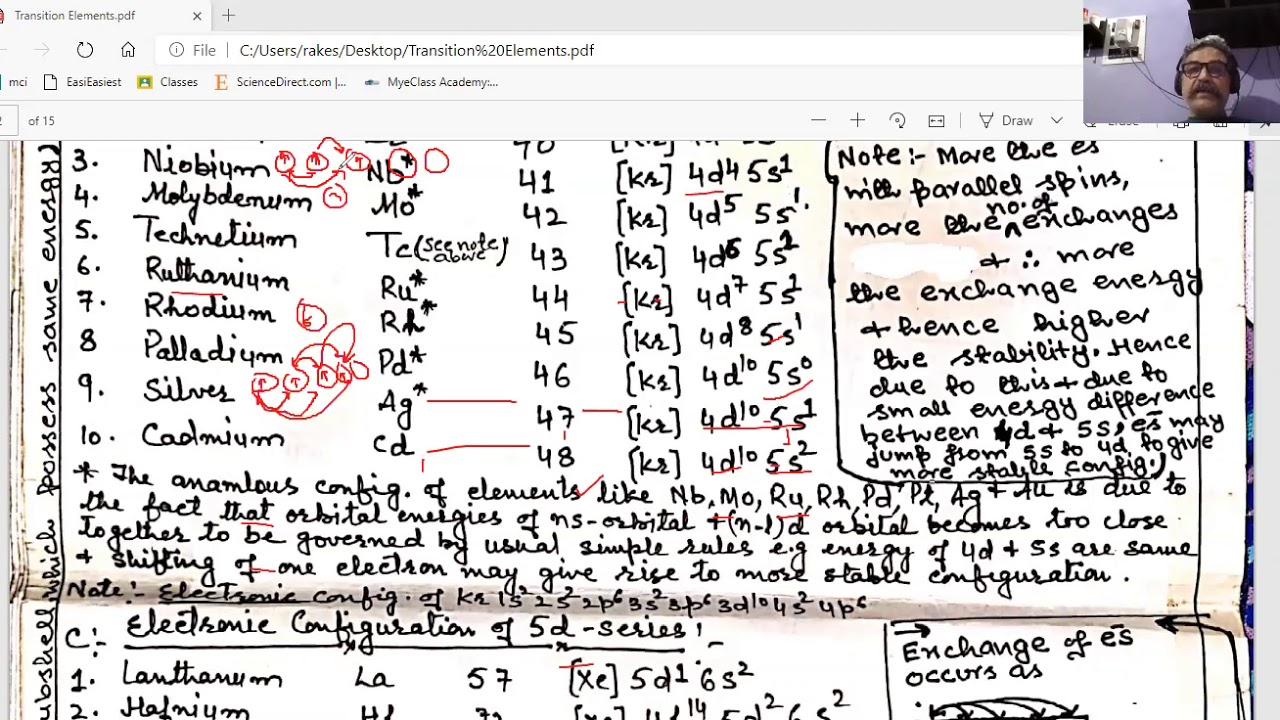 Transition Elements.pdf
File C:/Users/rakes/Desktop/Transition%20Elements.pdf
mci EasiEasiest Classes ScienceDirect.com |... MyeClass Academy:...
2 of 15 Draw Erase
possess same energy)
ubshell which
3. Niobium Nb* 41 [Kr] 4d4 5s1
4. Molybdenum Mo* 42 [Kr] 4d5 5s1.
5. Technetium Tc (see note above) 43 [Kr] 4d6 5s1
6. Ruthanium Ru* 44 [Kr] 4d7 5s1
7. Rhodium Rh* 45 [Kr] 4d8 5s1
8 Palladium Pd* 46 [Kr] 4d10 5s0
9. Silver Ag* 47 [Kr] 4d10 5s1
10. Cadmium Cd 48 [Kr] 4d10 5s2
Note:- More the es
with parallel spins,
more the no. of exchanges
+ ∴ more
the exchange energy
+ hence higher
the stability. Hence
due to this + due to
small energy difference
between 4d + 5s, es may
jump from 5s to 4d to give
more stable config.
* The anamlous config. of elements like Nb, Mo, Ru, Rh, Pd, Pt, Ag + Au is due to
the fact that orbital energies of ns-orbital + (n-1)d orbital becomes too close
together to be governed by usual simple rules e.g energy of 4d + 5s are same
+ shifting of one electron may give rise to more stable configuration.
Note:- Electronic config. of Kr 1s2 2s2 2p6 3s2 3p6 3d10 4s2 4p6
C:- Electronic Configuration of 5d-series:-
1. Lanthanum La 57 [Xe] 5d1 6s2
2. Hafnium Hf 72 [Xe] 4f14 5d2 6s2
Exchange of es
occurs as